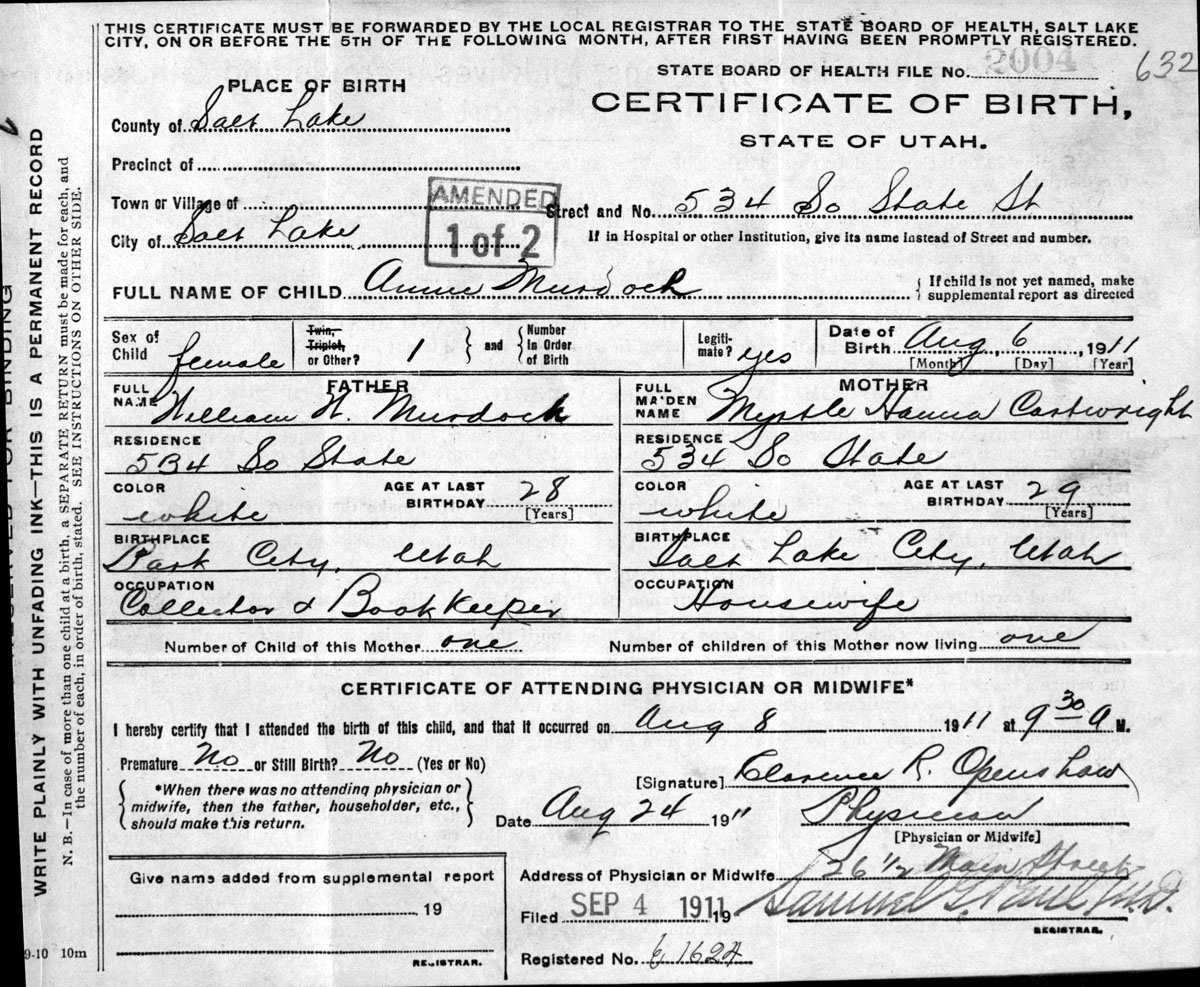 THIS CERTIFICATE MUST BE FORWARDED BY THE LOCAL REGISTRAR TO THE STATE BOARD OF HEALTH, SALT LAKE
CITY, ON OR BEFORE THE 5TH OF THE FOLLOWING MONTH, AFTER FIRST HAVING BEEN PROMPTLY REGISTERED.
STATE BOARD OF HEALTH FILE No. 2004 632
PLACE OF BIRTH
CERTIFICATE OF BIRTH,
STATE OF UTAH.
County of Salt Lake
Precinct of
Town or Village of
City of Salt Lake
AMENDED
1 of 2
Street and No. 534 So State St
If in Hospital or other Institution, give its name instead of Street and number.
FULL NAME OF CHILD Annie Murdock
If child is not yet named, make
supplemental report as directed
Sex of Child female
Twin, Triplet, or Other? 1 and Number In Order of Birth
Legiti-mate? yes
Date of Birth Aug 6, 1911
[Month] [Day] [Year]
FATHER
FULL NAME William H. Murdock
RESIDENCE
534 So State
COLOR white
AGE AT LAST BIRTHDAY 28 [Years]
BIRTHPLACE
Park City, Utah
OCCUPATION
Collector & BookKeeper
MOTHER
FULL MAIDEN NAME Myrtle Hanna Cartwright
RESIDENCE
534 So State
COLOR white
AGE AT LAST BIRTHDAY 29 [Years]
BIRTHPLACE
Salt Lake City, Utah
OCCUPATION
Housewife
Number of Child of this Mother one
Number of children of this Mother now living one
CERTIFICATE OF ATTENDING PHYSICIAN OR MIDWIFE*
I hereby certify that I attended the birth of this child, and that it occurred on Aug 8 1911 at 9 30 A M.
Premature No or Still Birth? No (Yes or No)
*When there was no attending physician or
midwife, then the father, householder, etc.,
should make this return.
[Signature] Clarence R. Openshaw
Date Aug 24 19 11 Physician
[Physician or Midwife]
Give name added from supplemental report
19
REGISTRAR.
Address of Physician or Midwife 26 1/2 Main Street
Filed SEP 4 1911 19
Samuel G. Paul M.D.
REGISTRAR.
Registered No. 1624
WRITE PLAINLY WITH UNFADING INK—THIS IS A PERMANENT RECORD
N. B.—In case of more than one child at a birth, a SEPARATE RETURN must be made for each, and
the number of each, in order of birth, stated. SEE INSTRUCTIONS ON OTHER SIDE.
9-10 10m